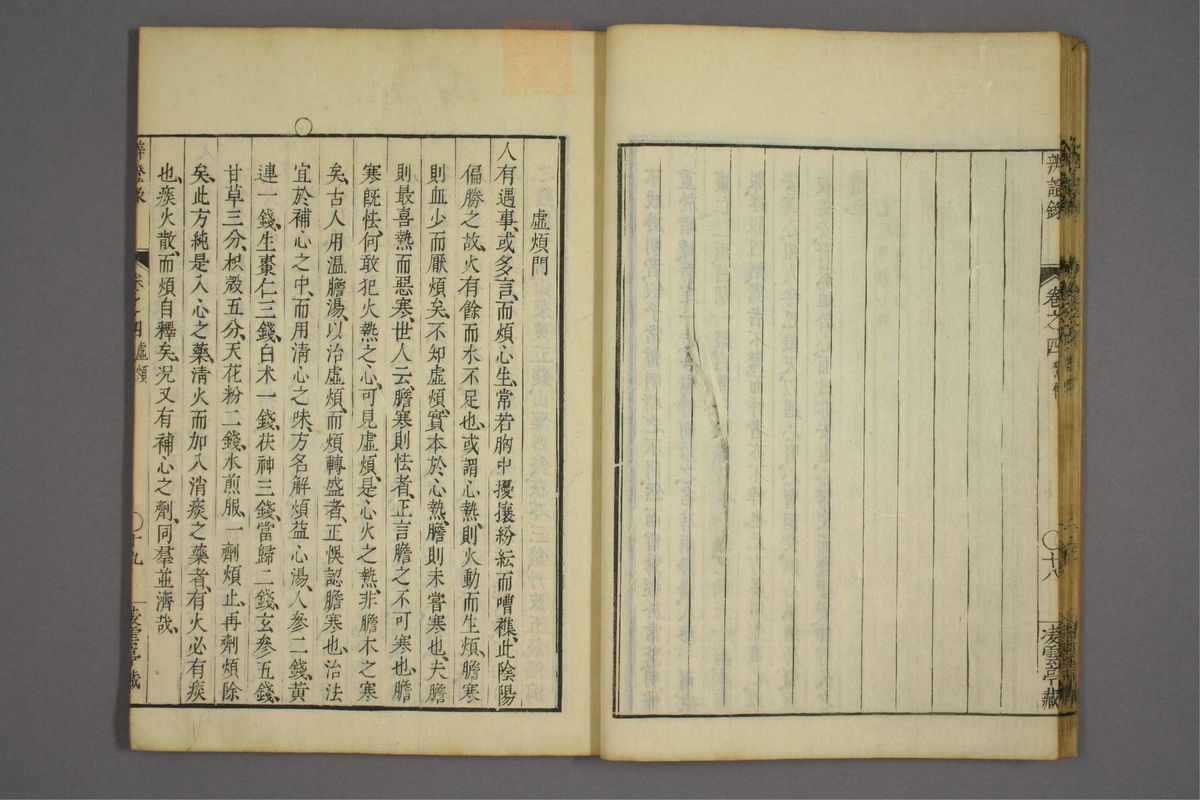 辨證錄
卷之四
十八
凌雲亭藏
虛煩門
人有遇事、或多言、而煩心生、常若胸中擾攘紛紜而嘈襍、此陰陽
偏勝之故、火有餘而水不足也、或謂心熱、則火動而生煩、膽寒
則血少而厭煩矣、不知虛煩、實本於心熱、膽則未嘗寒也、夫膽
則最喜熱而惡寒、世人云、膽寒則怯者、正言膽之不可寒也、膽
寒旣怯、何敢犯火熱之心、可見虛煩、是心火之熱、非膽木之寒
矣、古人用溫膽湯、以治虛煩、而煩轉盛者、正悞認膽寒也、治法
宜於補心之中、而用淸心之味、方名解煩益心湯、人參二錢、黃
連一錢、生棗仁三錢、白术一錢、茯神三錢、當歸二錢、玄參五錢、
甘草三分、枳殼五分、天花粉二錢、水煎服、一劑煩止、再劑煩除
矣、此方純是入心之藥、淸火而加入消痰之藥者、有火必有痰
也、痰火散、而煩自釋矣、况又有補心之劑、同羣並濟哉、
卷之四 虛煩
十九
凌雲亭藏